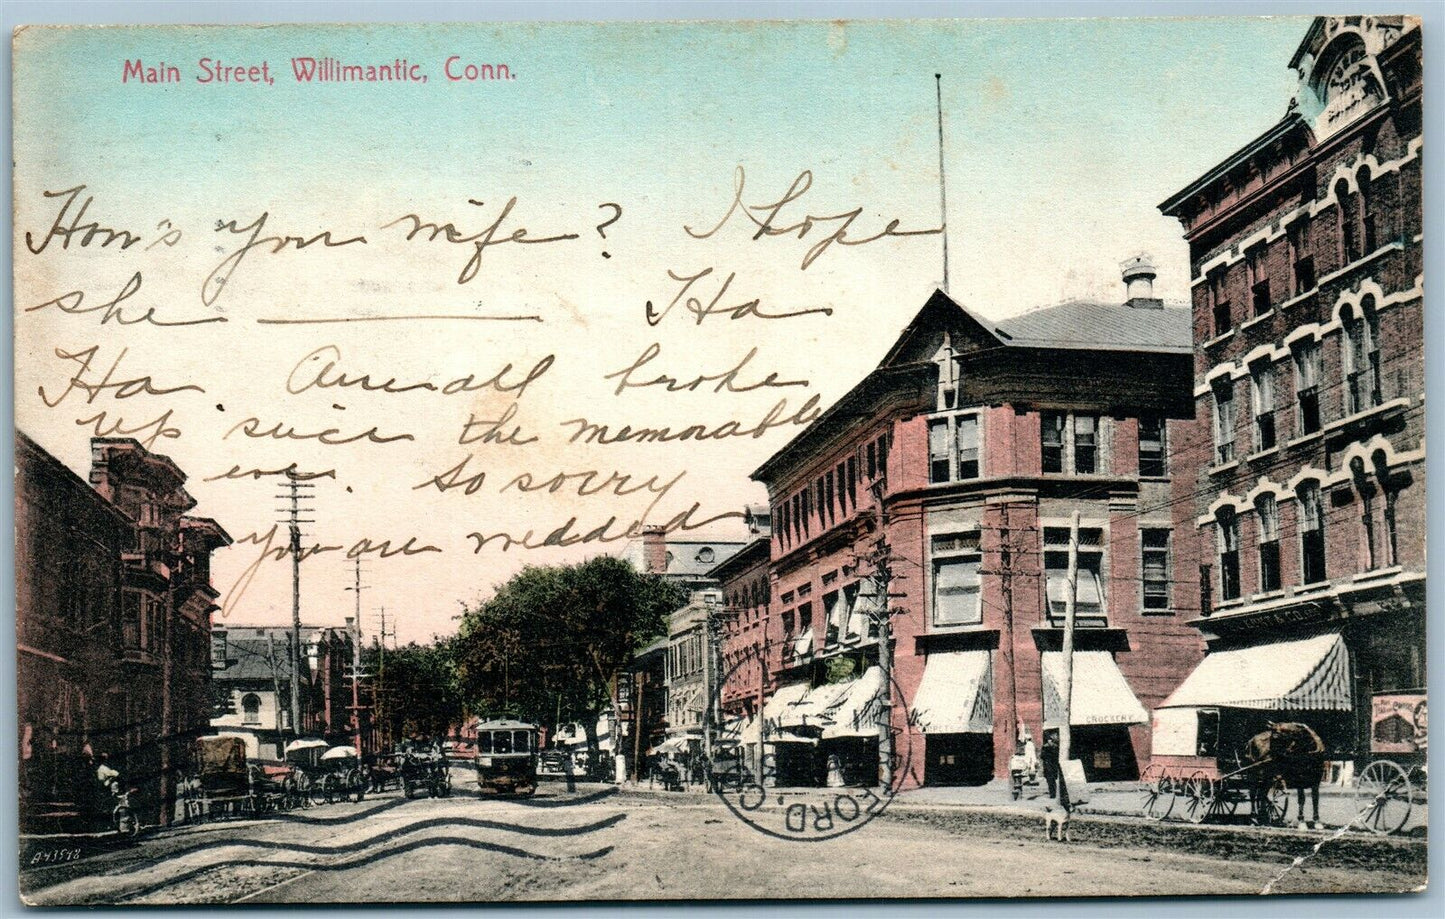 Main Street, Willimantic, Conn.
How's your wife? I hope
she ———— Ha
Ha. Am all broke
up since the memorable
eve. So sorry
you are wedded
GROCERY
A43548